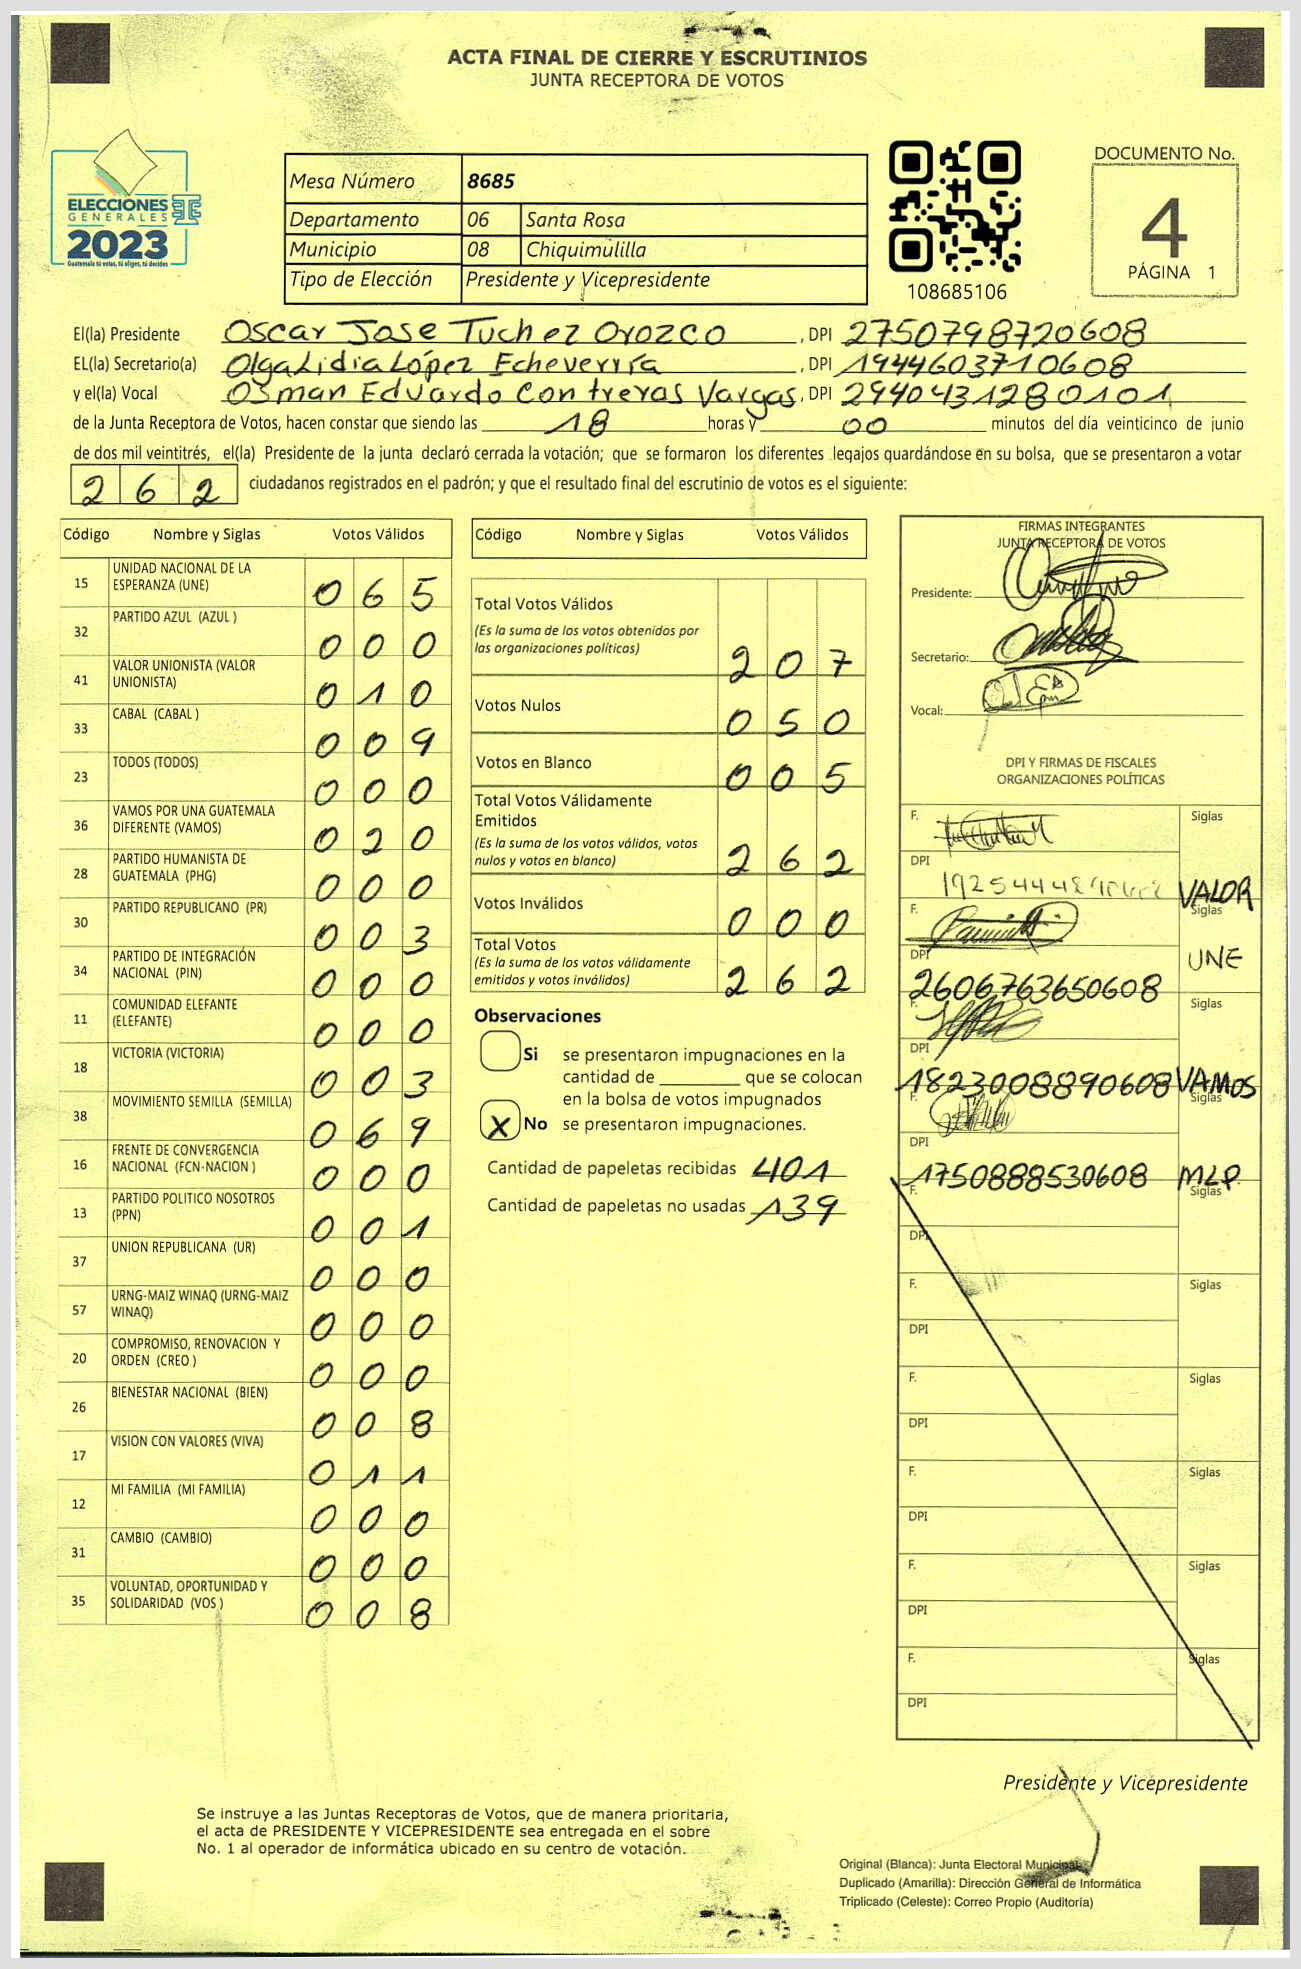 ACTA FINAL DE CIERRE Y ESCRUTINIOS
JUNTA RECEPTORA DE VOTOS
ELECCIONES
GENERALES
2023
Guatemala tú votas, tú eliges, tú decides
Mesa Número 8685
Departamento 06 Santa Rosa
Municipio 08 Chiquimulilla
Tipo de Elección Presidente y Vicepresidente
108685106
DOCUMENTO No.
4
PÁGINA 1
El(la) Presidente Oscar Jose Tuchez Orozco, DPI 2750798720608
EL(la) Secretario(a) Olga Lidia López Echeverría, DPI 1944603710608
y el(la) Vocal Osman Eduardo Contreras Vargas, DPI 2940431280101
de la Junta Receptora de Votos, hacen constar que siendo las 18 horas y 00 minutos del día veinticinco de junio
de dos mil veintitrés, el(la) Presidente de la junta declaró cerrada la votación; que se formaron los diferentes legajos guardándose en su bolsa, que se presentaron a votar
262 ciudadanos registrados en el padrón; y que el resultado final del escrutinio de votos es el siguiente:
Código Nombre y Siglas Votos Válidos
15 UNIDAD NACIONAL DE LA ESPERANZA (UNE) 065
32 PARTIDO AZUL (AZUL ) 000
41 VALOR UNIONISTA (VALOR UNIONISTA) 010
33 CABAL (CABAL ) 009
23 TODOS (TODOS) 000
36 VAMOS POR UNA GUATEMALA DIFERENTE (VAMOS) 020
28 PARTIDO HUMANISTA DE GUATEMALA (PHG) 000
30 PARTIDO REPUBLICANO (PR) 003
34 PARTIDO DE INTEGRACIÓN NACIONAL (PIN) 000
11 COMUNIDAD ELEFANTE (ELEFANTE) 000
18 VICTORIA (VICTORIA) 003
38 MOVIMIENTO SEMILLA (SEMILLA) 069
16 FRENTE DE CONVERGENCIA NACIONAL (FCN-NACION ) 000
13 PARTIDO POLITICO NOSOTROS (PPN) 001
37 UNION REPUBLICANA (UR) 000
57 URNG-MAIZ WINAQ (URNG-MAIZ WINAQ) 000
20 COMPROMISO, RENOVACION Y ORDEN (CREO ) 000
26 BIENESTAR NACIONAL (BIEN) 008
17 VISION CON VALORES (VIVA) 011
12 MI FAMILIA (MI FAMILIA) 000
31 CAMBIO (CAMBIO) 000
35 VOLUNTAD, OPORTUNIDAD Y SOLIDARIDAD (VOS ) 008
Código Nombre y Siglas Votos Válidos
Total Votos Válidos
(Es la suma de los votos obtenidos por
las organizaciones políticas) 207
Votos Nulos 050
Votos en Blanco 005
Total Votos Válidamente
Emitidos
(Es la suma de los votos válidos, votos
nulos y votos en blanco) 262
Votos Inválidos 000
Total Votos
(Es la suma de los votos válidamente
emitidos y votos inválidos) 262
Observaciones
Si se presentaron impugnaciones en la
cantidad de ________ que se colocan
en la bolsa de votos impugnados
X No se presentaron impugnaciones.
Cantidad de papeletas recibidas 401
Cantidad de papeletas no usadas 139
FIRMAS INTEGRANTES
JUNTA RECEPTORA DE VOTOS
Presidente:
Secretario:
Vocal:
DPI Y FIRMAS DE FISCALES
ORGANIZACIONES POLÍTICAS
F. Siglas
DPI VALOR
F. Siglas
DPI 2606763650608 UNE
F. Siglas
DPI 1823008890608 VAMOS
F. Siglas
DPI 1750888530608 MLP
F. Siglas
DPI
F. Siglas
DPI
F. Siglas
DPI
F. Siglas
DPI
F. Siglas
DPI
F. Siglas
DPI
Presidente y Vicepresidente
Se instruye a las Juntas Receptoras de Votos, que de manera prioritaria,
el acta de PRESIDENTE Y VICEPRESIDENTE sea entregada en el sobre
No. 1 al operador de informática ubicado en su centro de votación.
Original (Blanca): Junta Electoral Municipal
Duplicado (Amarilla): Dirección General de Informática
Triplicado (Celeste): Correo Propio (Auditoría)